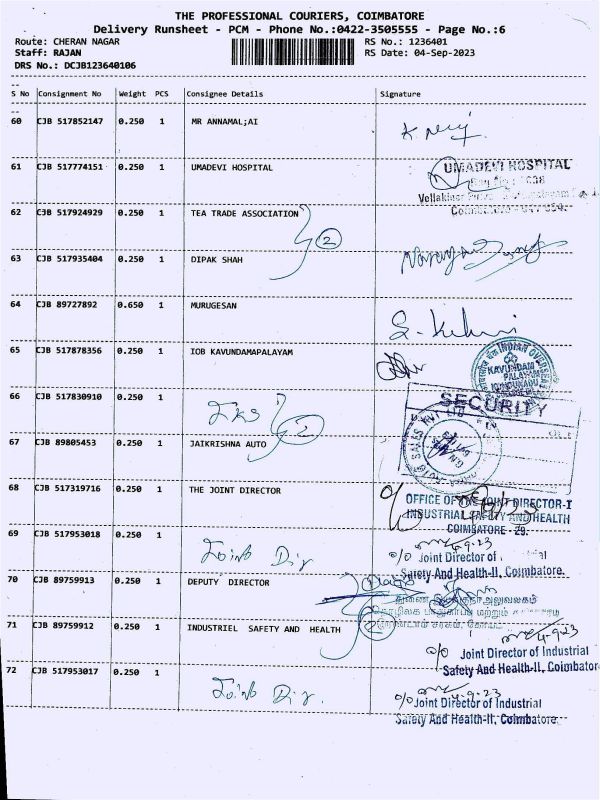 THE PROFESSIONAL COURIERS, COIMBATORE
Delivery Runsheet - PCM - Phone No.:0422-3505555 - Page No.:6
Route: CHERAN NAGAR RS No.: 1236401
Staff: RAJAN RS Date: 04-Sep-2023
DRS No.: DCJB123640106
S No Consignment No Weight PCS Consignee Details Signature
60 CJB 517852147 0.250 1 MR ANNAMAL;AI
61 CJB 517774151 0.250 1 UMADEVI HOSPITAL UMADEVI HOSPITAL
62 CJB 517924929 0.250 1 TEA TRADE ASSOCIATION
2
63 CJB 517935404 0.250 1 DIPAK SHAH
64 CJB 89727892 0.650 1 MURUGESAN
65 CJB 517878356 0.250 1 IOB KAVUNDAMAPALAYAM
KAVUNDAM
PALAYAM
66 CJB 517830910 0.250 1
SECURITY
2
67 CJB 89805453 0.250 1 JAIKRISHNA AUTO
68 CJB 517319716 0.250 1 THE JOINT DIRECTOR
OFFICE OF THE JOINT DIRECTOR-I
INDUSTRIAL SAFETY AND HEALTH
COIMBATORE - 29.
69 CJB 517953018 0.250 1
4-9-23
Joint Dir
o/o Joint Director of
Safety And Health-II, Coimbatore.
70 CJB 89759913 0.250 1 DEPUTY DIRECTOR
71 CJB 89759912 0.250 1 INDUSTRIEL SAFETY AND HEALTH
2
4-9-23
o/o Joint Director of Industrial
Safety And Health-II, Coimbator
72 CJB 517953017 0.250 1
Joint Dir
4-9-23
o/o Joint Director of Industrial
Safety And Health-II, Coimbatore.